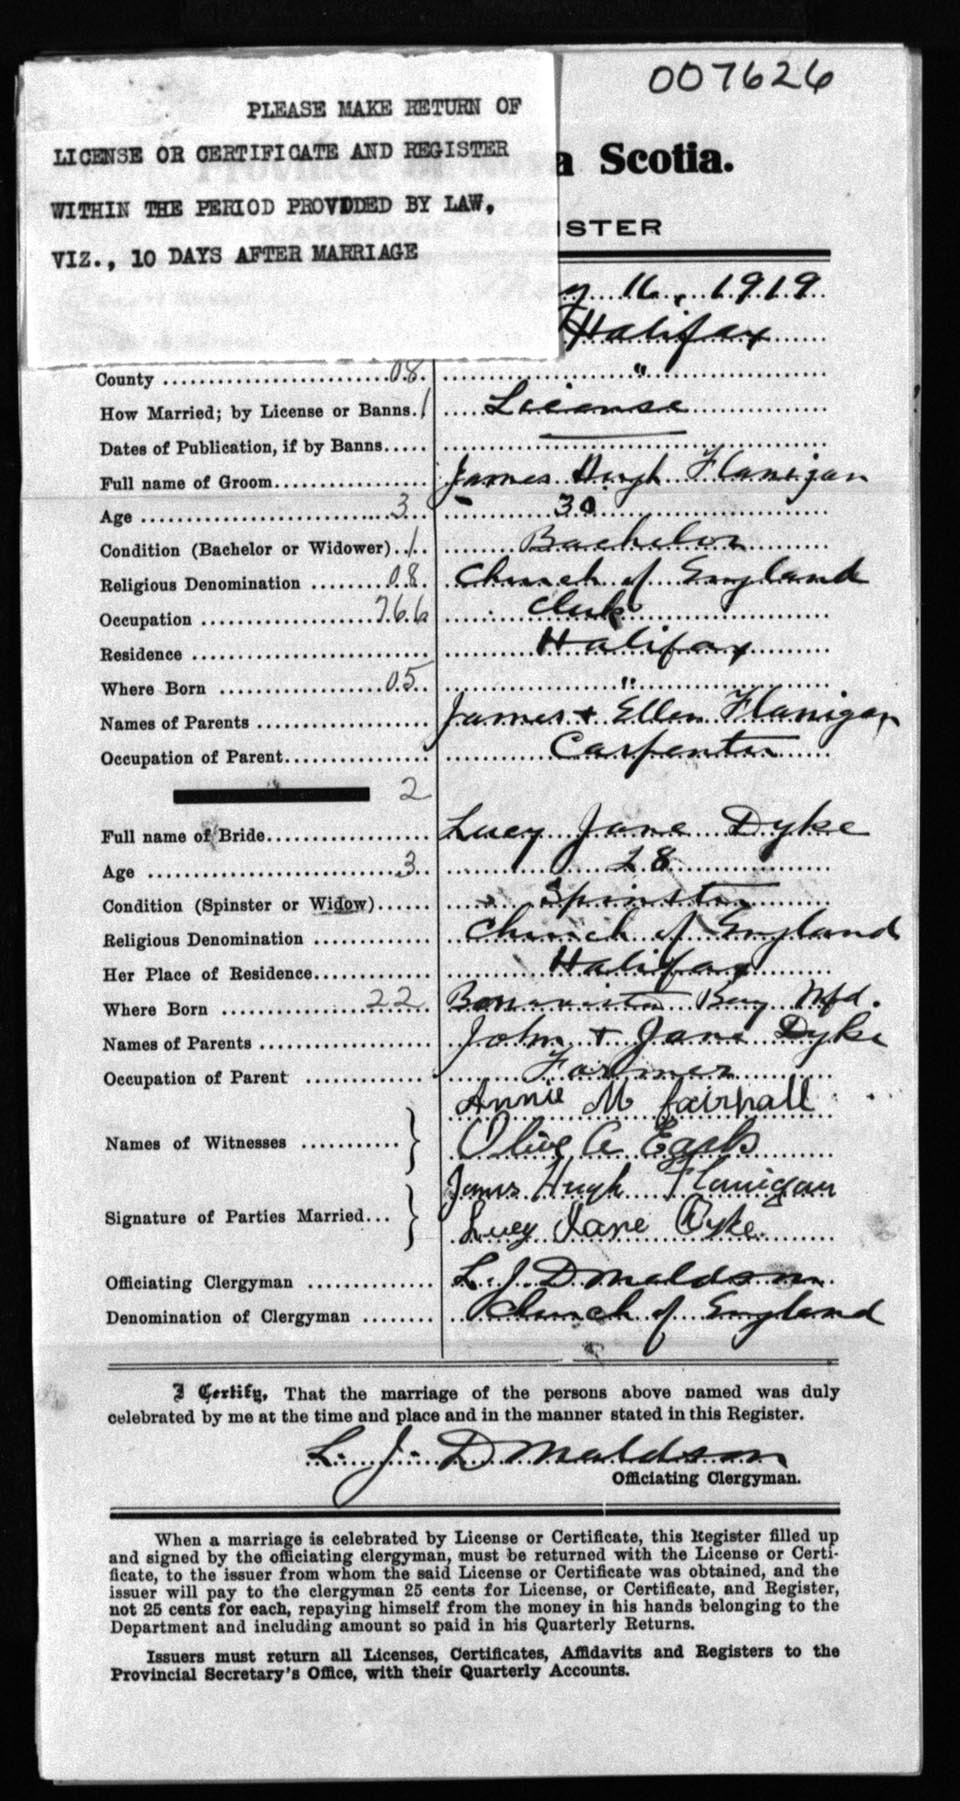 007626
PLEASE MAKE RETURN OF
LICENSE OR CERTIFICATE AND REGISTER
WITHIN THE PERIOD PROVIDED BY LAW,
VIZ., 10 DAYS AFTER MARRIAGE
a Scotia.
ISTER
y 16, 1919
Halifax
County 08 "
How Married; by License or Banns. 1 License
Dates of Publication, if by Banns
Full name of Groom James Hugh Flanigan
Age 3 30
Condition (Bachelor or Widower) 1 Bachelor
Religious Denomination 08 Church of England
Occupation 766 Clerk
Residence Halifax
Where Born 05 "
Names of Parents James + Ellen Flanigan
Occupation of Parent Carpenter
2
Full name of Bride Lucy Jane Dyke
Age 3 28
Condition (Spinster or Widow) Spinster
Religious Denomination Church of England
Her Place of Residence Halifax
Where Born 22 Bonavista Bay Nfd.
Names of Parents John + Jane Dyke
Occupation of Parent Farmer
Annie M fairnall
Names of Witnesses Olive A
James Hugh Flanigan
Signature of Parties Married... Lucy Jane Dyke.
Officiating Clergyman L. J. Donaldson
Denomination of Clergyman Church of England
I Certify, That the marriage of the persons above named was duly
celebrated by me at the time and place and in the manner stated in this Register.
L. J. Donaldson
Officiating Clergyman.
When a marriage is celebrated by License or Certificate, this Register filled up
and signed by the officiating clergyman, must be returned with the License or Certi-
ficate, to the issuer from whom the said License or Certificate was obtained, and the
issuer will pay to the clergyman 25 cents for License, or Certificate, and Register,
not 25 cents for each, repaying himself from the money in his hands belonging to the
Department and including amount so paid in his Quarterly Returns.
Issuers must return all Licenses, Certificates, Affidavits and Registers to the
Provincial Secretary's Office, with their Quarterly Accounts.